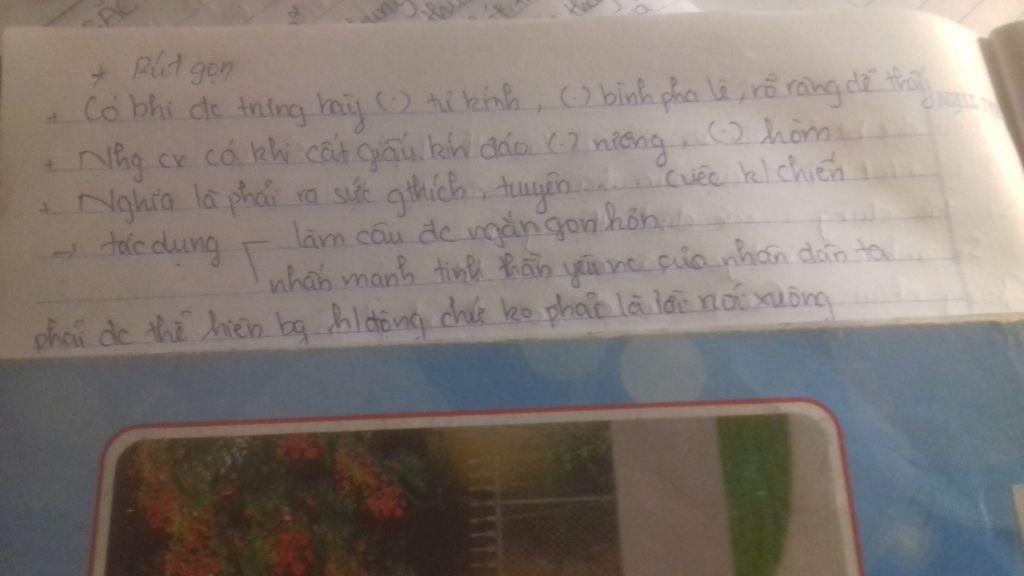 + Rút gọn
+ Có khi đc trưng bày (.) tủ kính, (.) bình pha lê, rõ ràng dễ thấy
+ Nhg cx có khi cất giấu kín đáo (.) rương, (.) hòm
+ Nghĩa là phải ra sức gthích, tuyên .... cuộc k/chiến
→ tác dụng làm câu đc ngắn gọn hơn
nhấn mạnh tinh thần yêu nc của nhân dân ta
phải đc thể hiện bg h/động chứ ko phải là lời nói xuông